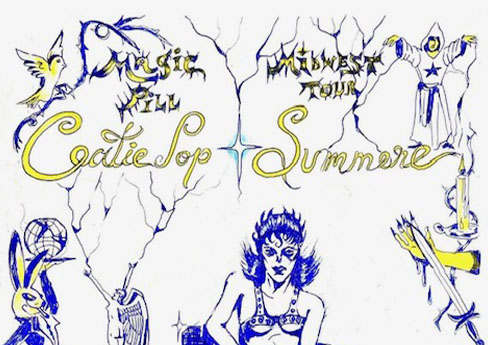 Magic
Pill
Midwest
Tour
Catie Pop Summere